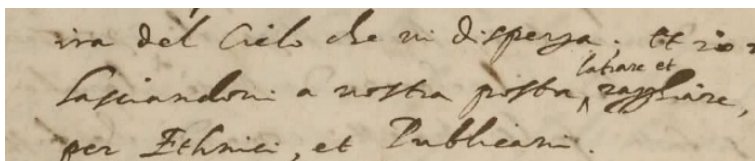 ira del Cielo che vi disperga; Et
lasciandovi a vostra posta, latrare et ragghiare,
per Ethnici, et Publicani.